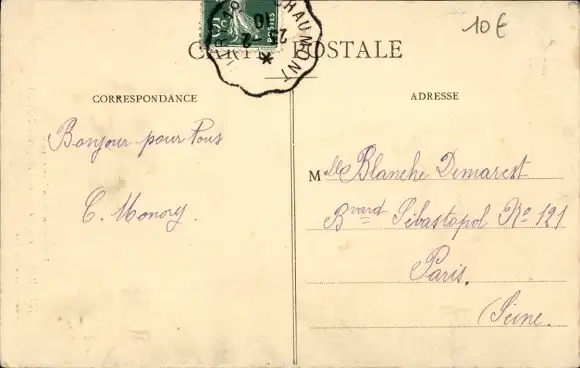 10€
CHAUMONT
25-2
10
CARTE POSTALE
CORRESPONDANCE
ADRESSE
Bonjour pour Tous
C. Monory.
Mlle Blanche Demarest
Bvard Sébastopol No 121
Paris.
Seine.